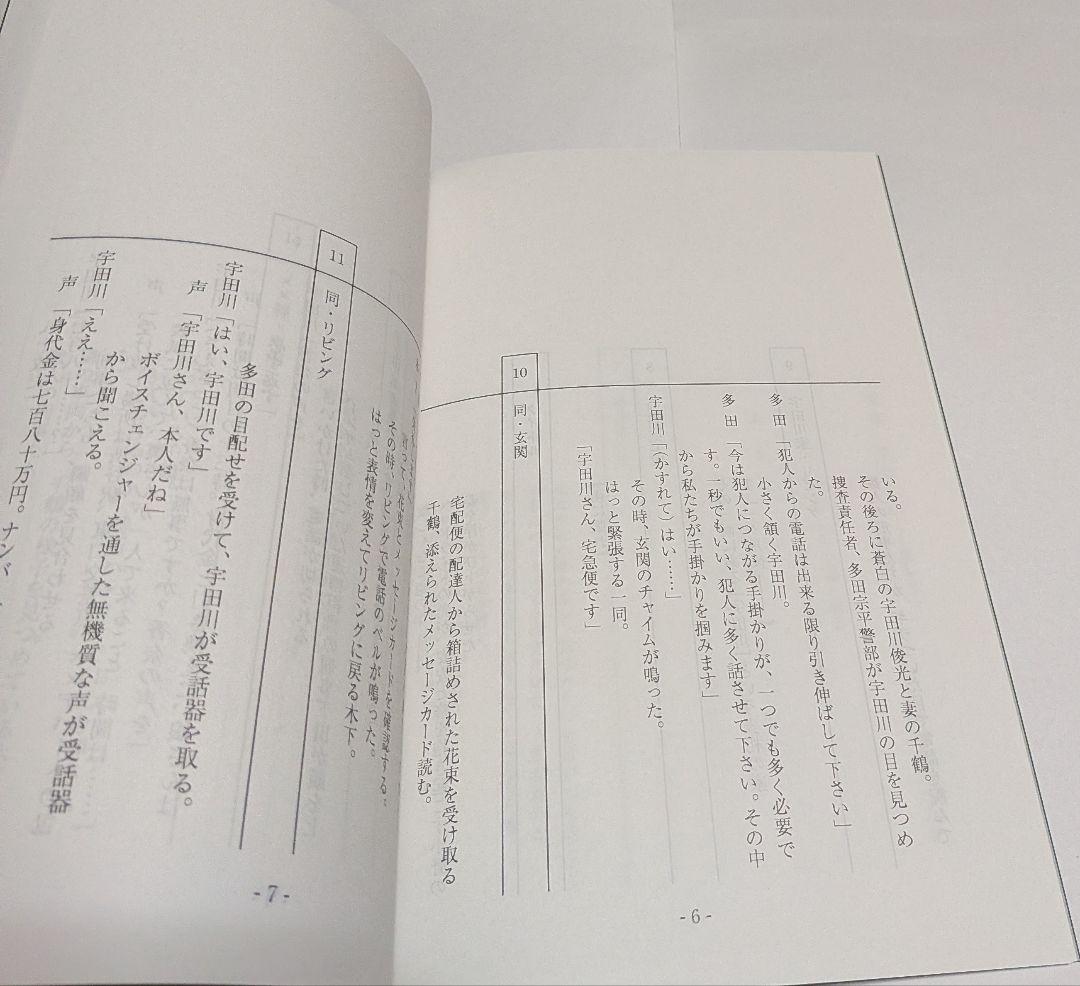 いる。
その後ろに蒼白の宇田川俊光と妻の千鶴。
捜査責任者、多田宗平警部が宇田川の目を見つめ
た。
多田「犯人からの電話は出来る限り引き伸ばして下さい」
小さく頷く宇田川。
多田「今は犯人につながる手掛かりが、一つでも多く必要で
す。一秒でもいい、犯人に多く話させて下さい。その中
から私たちが手掛かりを掴みます」
宇田川「（かすれて）はい……」
その時、玄関のチャイムが鳴った。
はっと緊張する一同。
「宇田川さん、宅急便です」
10 同・玄関
宅配便の配達人から箱詰めされた花束を受け取る
千鶴、添えられたメッセージカード読む。
-6-
って、花束とメッセージカードを確認する。
その時、リビングで電話のベルが鳴った。
はっと表情を変えてリビングに戻る木下。
11 同・リビング
多田の目配せを受けて、宇田川が受話器を取る。
宇田川「はい、宇田川です」
声「宇田川さん、本人だね」
ボイスチェンジャーを通した無機質な声が受話器
から聞こえる。
宇田川「ええ……」
声「身代金は七百八十万円。ナンバ
-7-